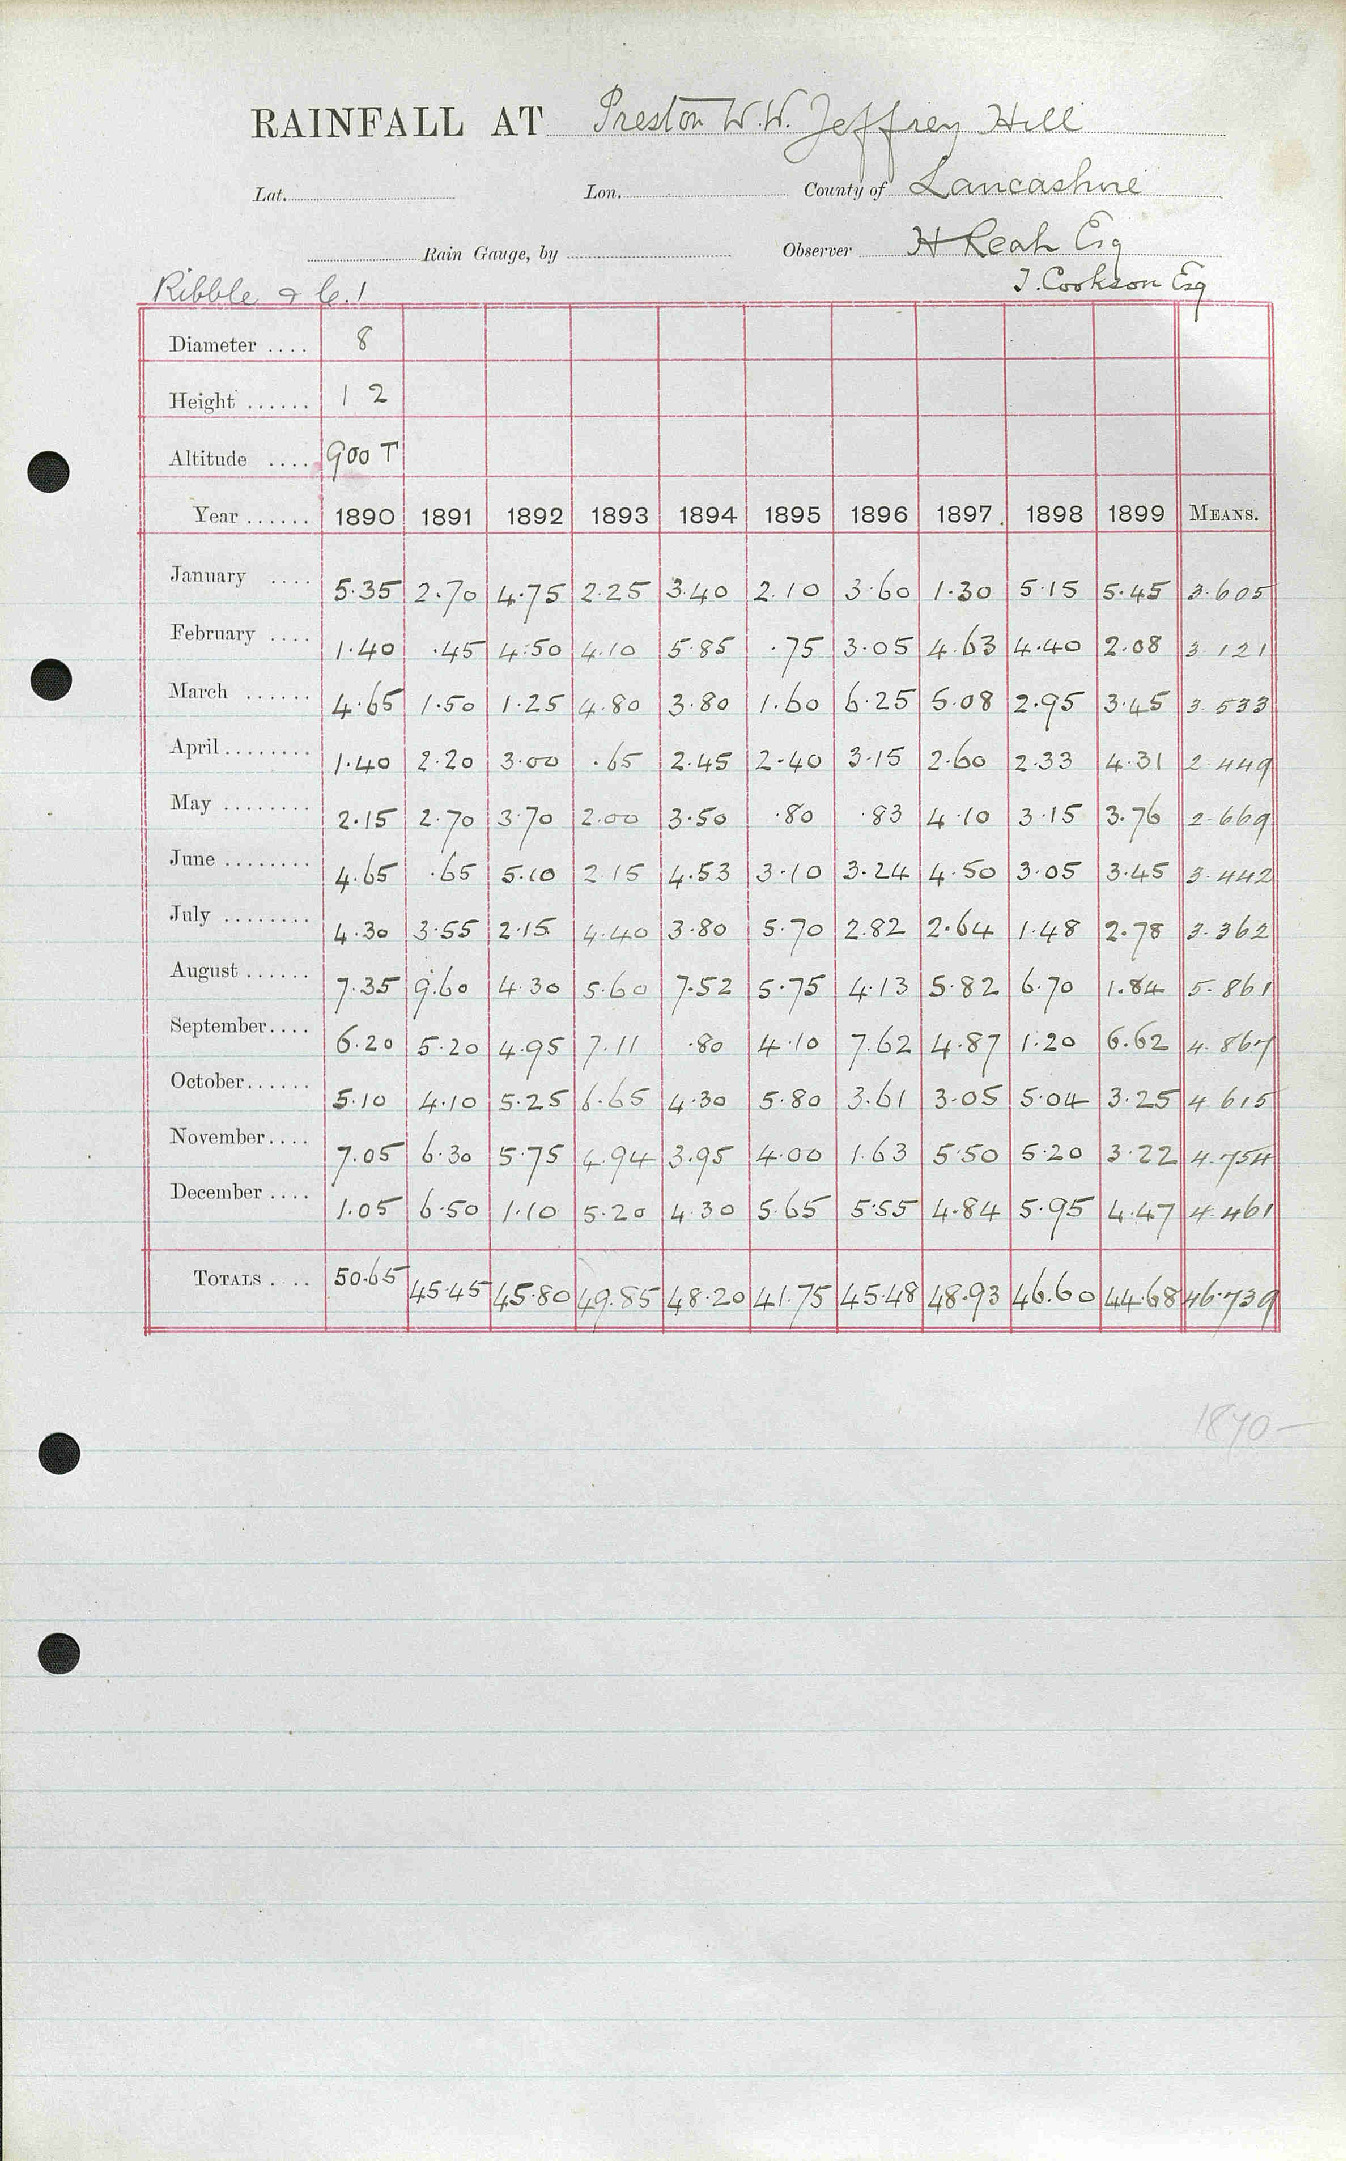 RAINFALL AT Preston W.W. Jeffrey Hill
Lat. Lon. County of Lancashire
Rain Gauge, by Observer H Reah Esq
J. Cookson Esq
Ribble & C. 1
Diameter .... 8
Height ...... 1 2
Altitude .... 900 T
Year ...... 1890 1891 1892 1893 1894 1895 1896 1897 1898 1899 MEANS.
January .... 5.35 2.70 4.75 2.25 3.40 2.10 3.60 1.30 5.15 5.45 3.605
February .... 1.40 .45 4.50 4.10 5.85 .75 3.05 4.63 4.40 2.08 3.121
March ...... 4.65 1.50 1.25 4.80 3.80 1.60 6.25 5.08 2.95 3.45 3.533
April ........ 1.40 2.20 3.00 .65 2.45 2.40 3.15 2.60 2.33 4.31 2.449
May ........ 2.15 2.70 3.70 2.00 3.50 .80 .83 4.10 3.15 3.76 2.669
June ........ 4.65 .65 5.10 2.15 4.53 3.10 3.24 4.50 3.05 3.45 3.442
July ........ 4.30 3.55 2.15 4.40 3.80 5.70 2.82 2.64 1.48 2.78 3.362
August ...... 7.35 9.60 4.30 5.60 7.52 5.75 4.13 5.82 6.70 1.84 5.861
September .... 6.20 5.20 4.95 7.11 .80 4.10 7.62 4.87 1.20 6.62 4.867
October ...... 5.10 4.10 5.25 6.65 4.30 5.80 3.61 3.05 5.04 3.25 4.615
November .... 7.05 6.30 5.75 4.94 3.95 4.00 1.63 5.50 5.20 3.22 4.754
December .... 1.05 6.50 1.10 5.20 4.30 5.65 5.55 4.84 5.95 4.47 4.461
TOTALS .... 50.65 45.45 45.80 49.85 48.20 41.75 45.48 48.93 46.60 44.68 46.739
1870-